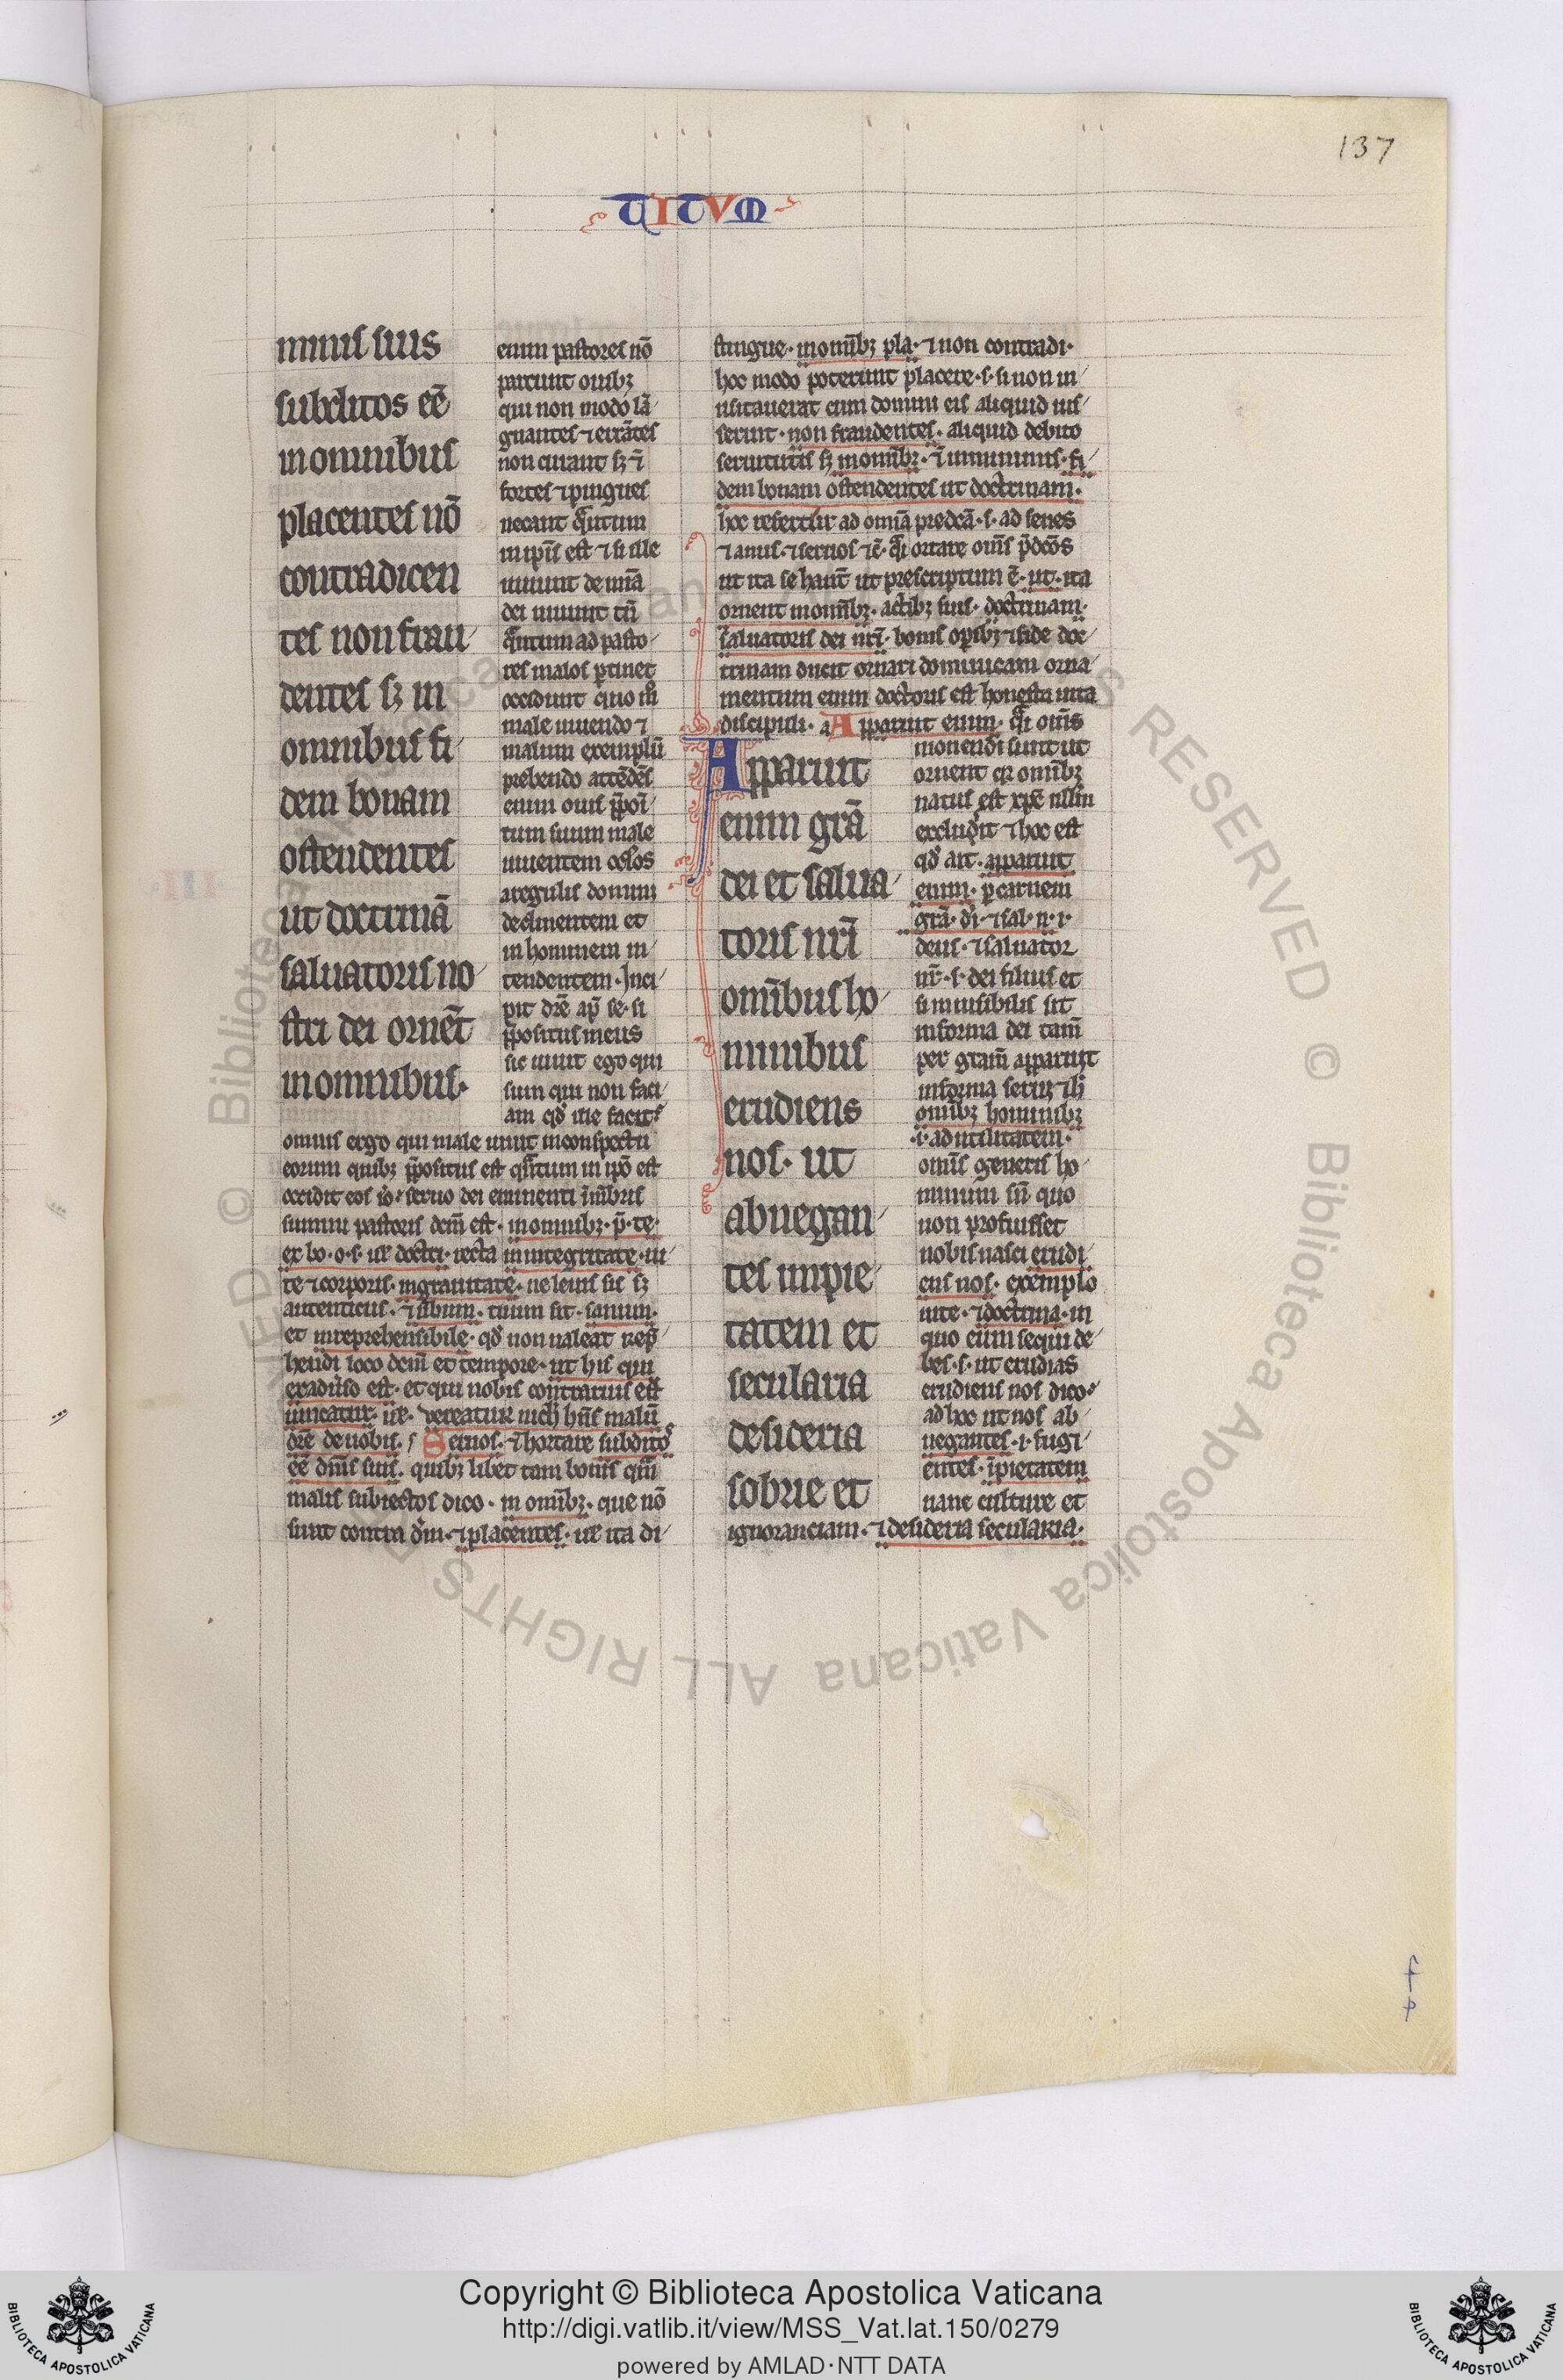 137
TITVM
minis suis
subditos eē
in omnibus
placentes nō
contradicen
tes non frau
dentes sꝫ in
omnibus fi
dem bonam
ostendentes
ut doctrinā
saluatoris no
stri dei ornēt
in omnibus.
enim pastores nō
parcunt ouibꝫ
qui non modo lā
guentes ⁊ errātes
non curant sꝫ ⁊
fortes ⁊ pingues
necant q̄ntum
in ip̄is est ⁊ si ille
uiuunt de mīa
dei uiuunt tn̄
q̄ntum ad pasto
res malos ꝑtinet
occidunt quo mͦ
male uiuendo ⁊
malum exemplū
prebendo attēdēs
enim ouis p̄posi
tum suum male
uiuentem oculos
a regulis domini
declinentem et
in hominem in
tendentem. Inci
pit dr̄e ap̄ se. si
p̄positus meus
sic uiuit ego qui
sum qui non faci
am qd̓ ille facit
omnis ergo qui male uiuit in conspectu
eorum quibꝫ p̄positus est q̄ntum in ip̄o est
occidit eos
summi pastoris dem̄ est. in omnibꝫ. p̄. te.
ex bo. o. s. ut doctri. recta in integritate. ui
te ⁊ corporis. in grauitate. ne leuis sis sꝫ
autenticus. ⁊ ūbum. tuum sit. sanum.
et inreprehensibile. qd̓ non ualeat rep̄
hendi loco dem̄ et tempore. ut his qui
ex aduīso est. et qui nobis contrarius est
uereatur. uereatur nich̓ hn̄s malū
dr̄e de nobis. Seruos. ⁊ hortare subditos
eē dn̄is suis. quibꝫ libet tam bonis qm̄
malis subiectos dico. in omībꝫ. que nō
sunt contra dm̄. ⁊ placentes. ut ita di
stingue. in omībꝫ pla. ⁊ non contradi.
hoc modo poterunt placere. s. si non in
usitauerat cum domini eis aliquid ius
serint. non fraudentes. aliquid debito
seruitutis sꝫ in omībꝫ. ⁊ in minimis. fi
dem bonam ostendentes ut doctrinam.
hoc refertur ad omīa predc̄a. s. ad senes
⁊ anus. ⁊ seruos ⁊c̄. q̄i ortare om̄s p̄dc̄os
ut ita se hant̄ ut prescriptum ē. ut. ita
ornent in omībꝫ. actibꝫ suis. doctrinam.
saluatoris dei nr̄i. bonis opibꝫ ⁊ fide doc
trinam ducit ornari dominicam orna
mentum enim doctoris est honesta uita
discipuli. a Apparuit enim. q̄i om̄s
Apparuit
enim grā
dei et salua
toris nr̄i
om̄ibus ho
minibus
erudiens
nos. ut
abnegan
tes impie
tatem et
secularia
desideria
sobrie et
monendi sunt ut
ornent qr̄ omībꝫ
natus est xp̄c nllm̄
excludit ⁊ hoc est
qd̓ ait. apparuit
enim. ꝑ carnem
grā. di. ⁊ sal. n. i.
deus. ⁊ saluator
nr̄. s. dei filius et
si inuisibilis sit
in forma dei tam̄
per gram̄ apparuit
in forma serui ⁊ h̓
omībꝫ hominibꝫ
.i. ad utilitatem.
om̄is generis ho
minum sn̄ quo
non profuisset
nobis nasci erudi
ens nos. exemplo
uite. ⁊ doctrina. in
quo eum sequi de
bes. s. ut erudias
erudiens nos dico
ad hoc ut nos ab
negantes. i. fugi
entes. īpietatem
uane culture et
ignoranciam. ⁊ desideria secularia.
Copyright © Biblioteca Apostolica Vaticana
http://digi.vatlib.it/view/MSS_Vat.lat.150/0279
powered by AMLAD·NTT DATA
BIBLIOTECA APOSTOLICA VATICANA
BIBLIOTECA APOSTOLICA VATICANA